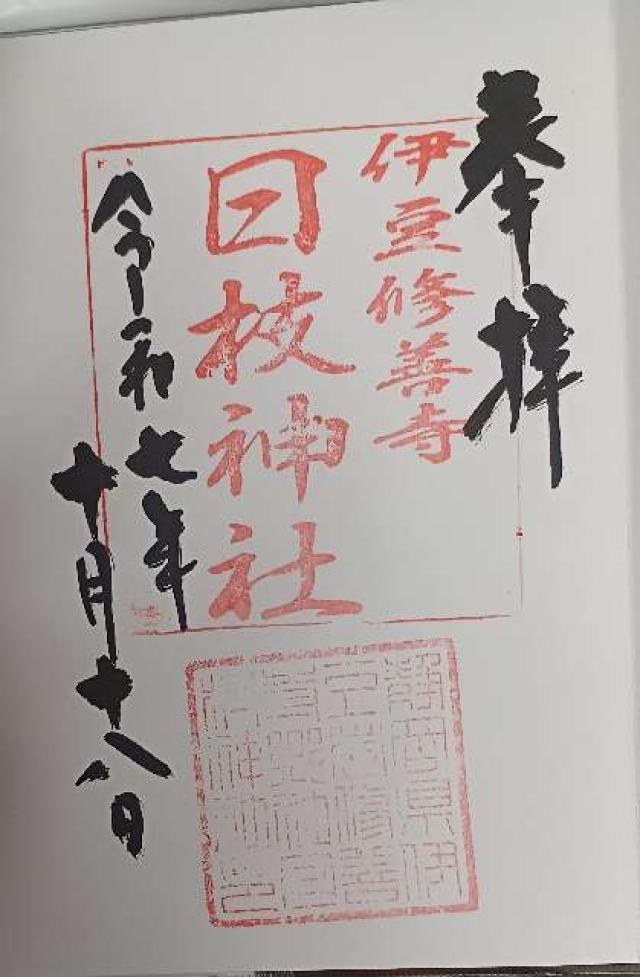 奉拝
伊豆修善寺
日枝神社
令和七年
十月十八日